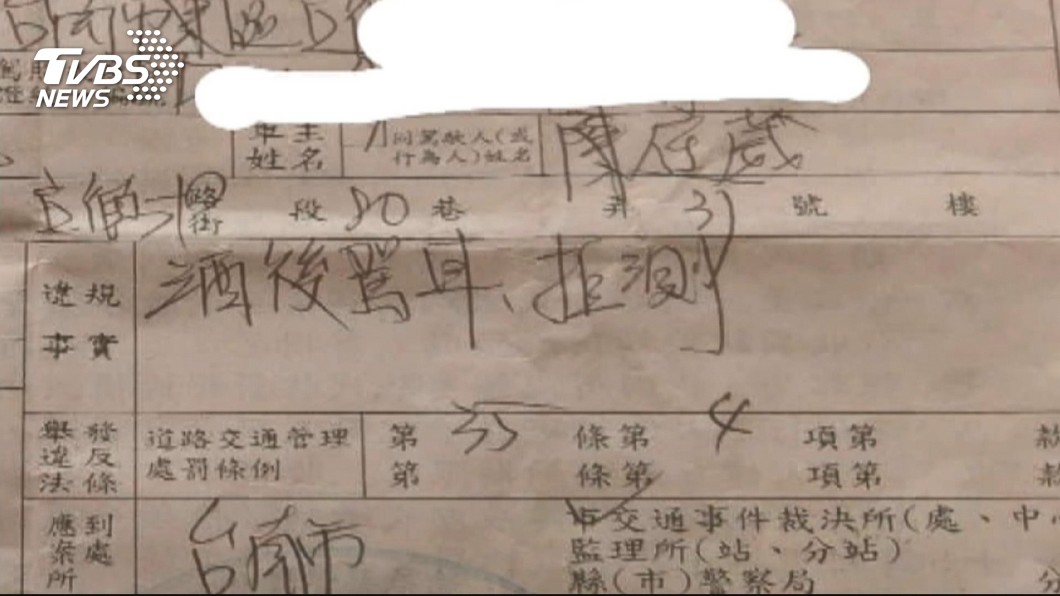 台南市東區
TVBS
NEWS
車主
姓名
同駕駛人(或
行為人)姓名
路
街
段 80 巷 弄 31 號 樓
違規
事實
酒後駕車、拒測
舉發
違反
法條
道路交通管理
處罰條例
第 35 條第 4 項第 款
第 條第 項第 款
應到
案處
所
台南市
市交通事件裁決所(處、中心
監理所(站、分站)
縣(市)警察局 分